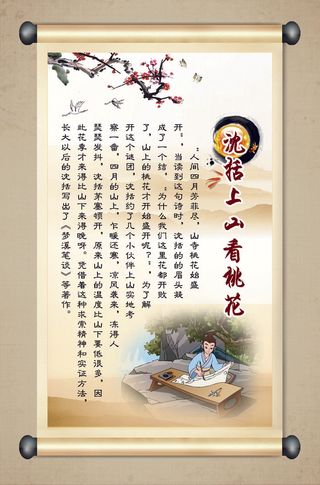 沈括上山看桃花
:人间四月芳菲尽，山寺桃花始盛
开:，当读到这句诗时，沈括的的眉头凝
成了一个结，:为什么我们这里花都开败
了，山上的桃花才开始盛开呢?:，为了解
开这个谜团，沈括约了几个小伙伴上山实地考
察一番，四月的山上，乍暖还寒，凉风袭来，冻得人
瑟瑟发抖，沈括茅塞顿开，原来山上的温度比山下要低很多，因
此花季才来得比山下来得晚呀。凭借着这种求索精神和实证方法，
长大以后的沈括写出了《梦溪笔谈》等著作。